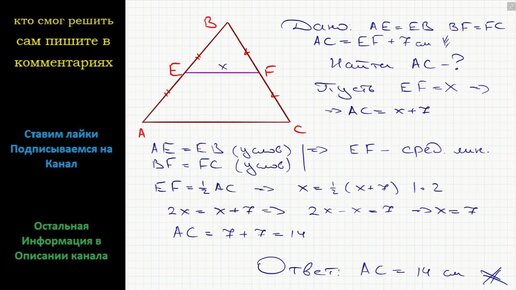 кто смог решить
сам пишите в
комментариях
Ставим лайки
Подписываемся на
Канал
Остальная
Информация в
Описании канала
B
E
x
F
A
C
Дано. AE = EB BF = FC
AC = EF + 7 см
Найти AC - ?
Пусть EF = X =>
=> AC = x + 7
AE = EB (услов) | => EF - сред. лин.
BF = FC (услов)
EF = 1/2 AC => x = 1/2 (x + 7) | · 2
2x = x + 7 => 2x - x = 7 => x = 7
AC = 7 + 7 = 14
Ответ: AC = 14 см